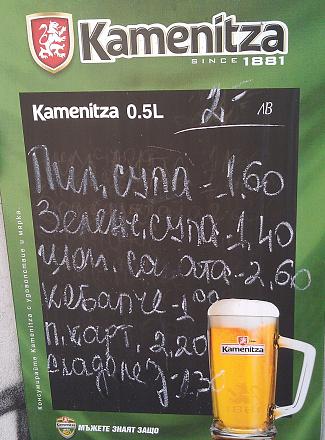 Kamenitza
SINCE 1881
Kamenitza 0.5L 2- ЛВ
Пил. супа - 1,60
Зеленч. супа - 1,40
Шоп. салата - 2,60
Кебапче - 1,00
П. карт. 2,20
Сладолед - 1,30
Kamenitza
1881
Консумирайте Kamenitza с удоволствие и мярка.
МЪЖЕТЕ ЗНАЯТ ЗАЩО